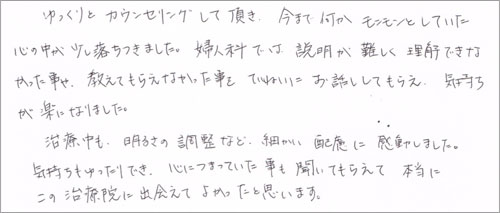 ゆっくりと カウンセリングして頂き、今まで何か モンモンとしていた
心の中が少し落ちつきました。婦人科では 説明が 難しく 理解できな
かった事や、教えてもらえなかった事を ていねいに お話ししてもらえ、気持ち
が楽になりました。
治療中も、明るさの調整など、細かい 配慮に 感動しました。
気持ちもゆったりでき、心につまっていた事も 聞いてもらえて 本当に
この治療院に出会えて よかったと思います。